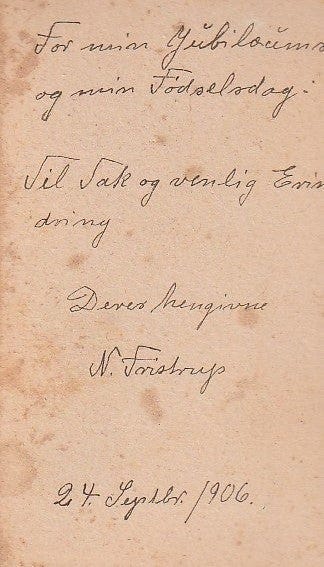 For min Jubilæums
og min Födselsdag.
Til Tak og venlig Erin
dring
Deres hengivne
N. Fristrup
24. Septbr. 1906.